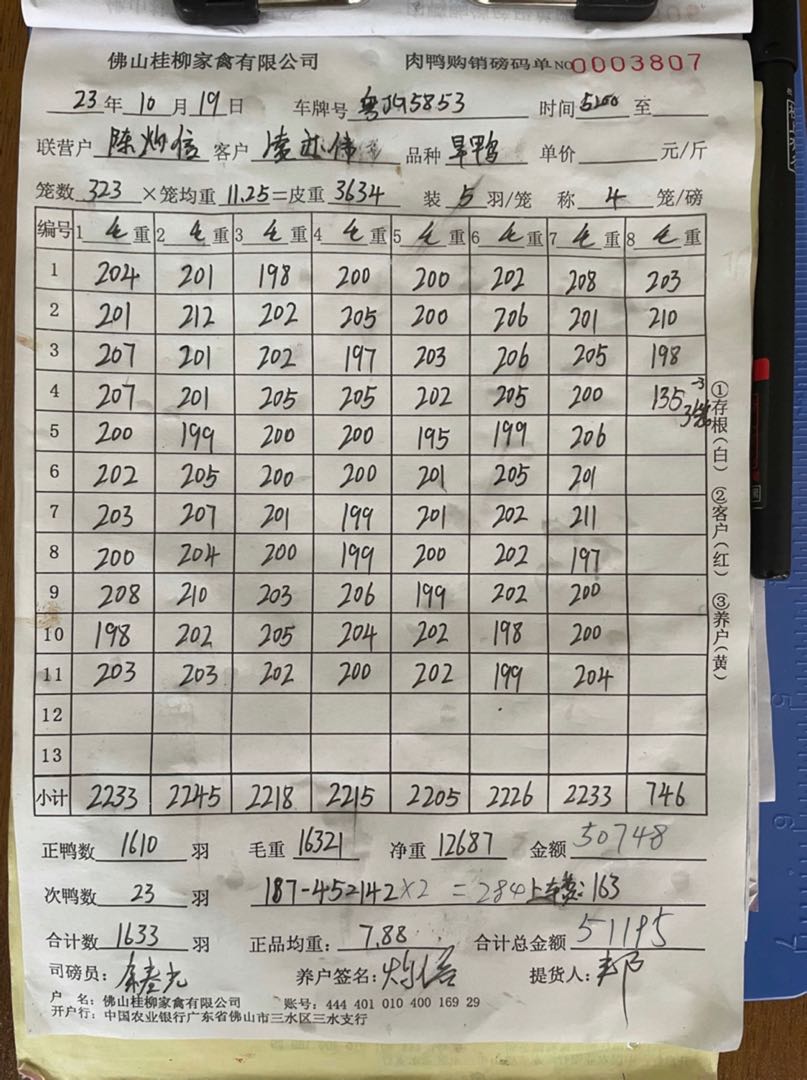 佛山桂柳家禽有限公司 肉鸭购销磅码单 NO 0003807
23年 10月 19日 车牌号 粤J95853 时间 5:00 至
联营户 陈灿信 客户 品种 旱鸭 单价 元/斤
笼数 323 ×笼均重 11.25=皮重 3634 装 5 羽/笼 称 4 笼/磅
编号 1 毛重 2 毛重 3 毛重 4 毛重 5 毛重 6 毛重 7 毛重 8 毛重
1 204 201 198 200 200 202 208 203
2 201 212 202 205 200 206 201 210
3 207 201 202 197 203 206 205 198
4 207 201 205 205 202 205 200 135 -3
5 200 199 200 200 195 199 206
6 202 205 200 200 201 205 201
7 203 207 201 199 201 202 211
8 200 204 200 199 200 202 197
9 208 210 203 206 199 202 200
10 198 202 205 204 202 198 200
11 203 203 202 200 202 199 204
12
13
小计 2233 2245 2218 2215 2205 2226 2233 746
①存根(白) ②客户(红) ③养户(黄)
正鸭数 1610 羽 毛重 16321 净重 12687 金额 50748
次鸭数 23 羽 187-45=142×2=284 上车费:163
合计数 1633 羽 正品均重: 7.88 合计总金额 51195
司磅员: 养户签名: 灿信 提货人: 邦
户 名: 佛山桂柳家禽有限公司 账号: 444 401 010 400 169 29
开户行: 中国农业银行广东省佛山市三水区三水支行